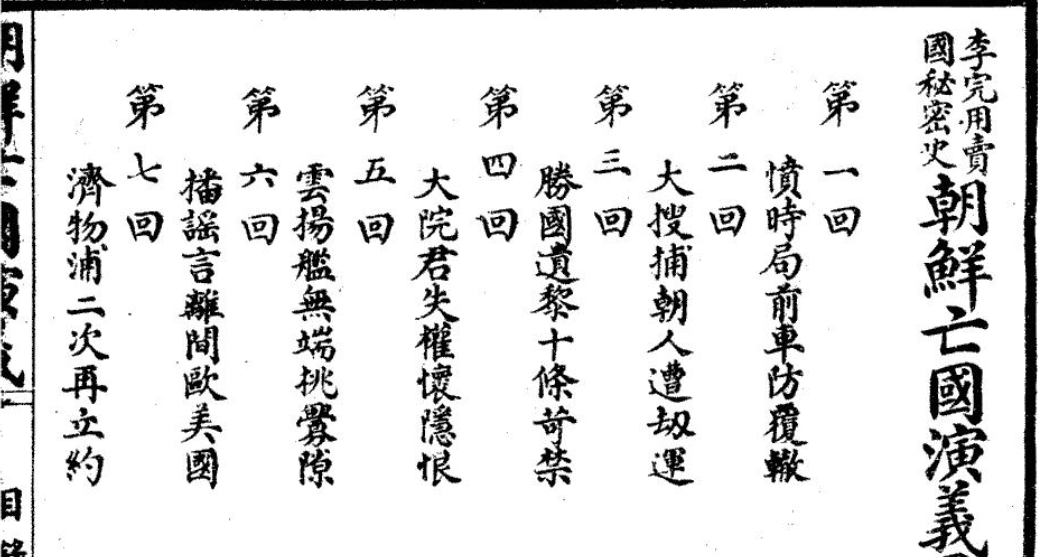 李完用賣
國秘密史
朝鮮亡國演義
第一回
憤時局前車防覆轍
第二回
大搜捕朝人遭劫運
第三回
勝國遺黎十條苛禁
第四回
大院君失權懷隱恨
第五回
雲揚艦無端挑釁隙
第六回
播謠言離間歐美國
第七回
濟物浦二次再立約
朝鮮亡國演義
目錄